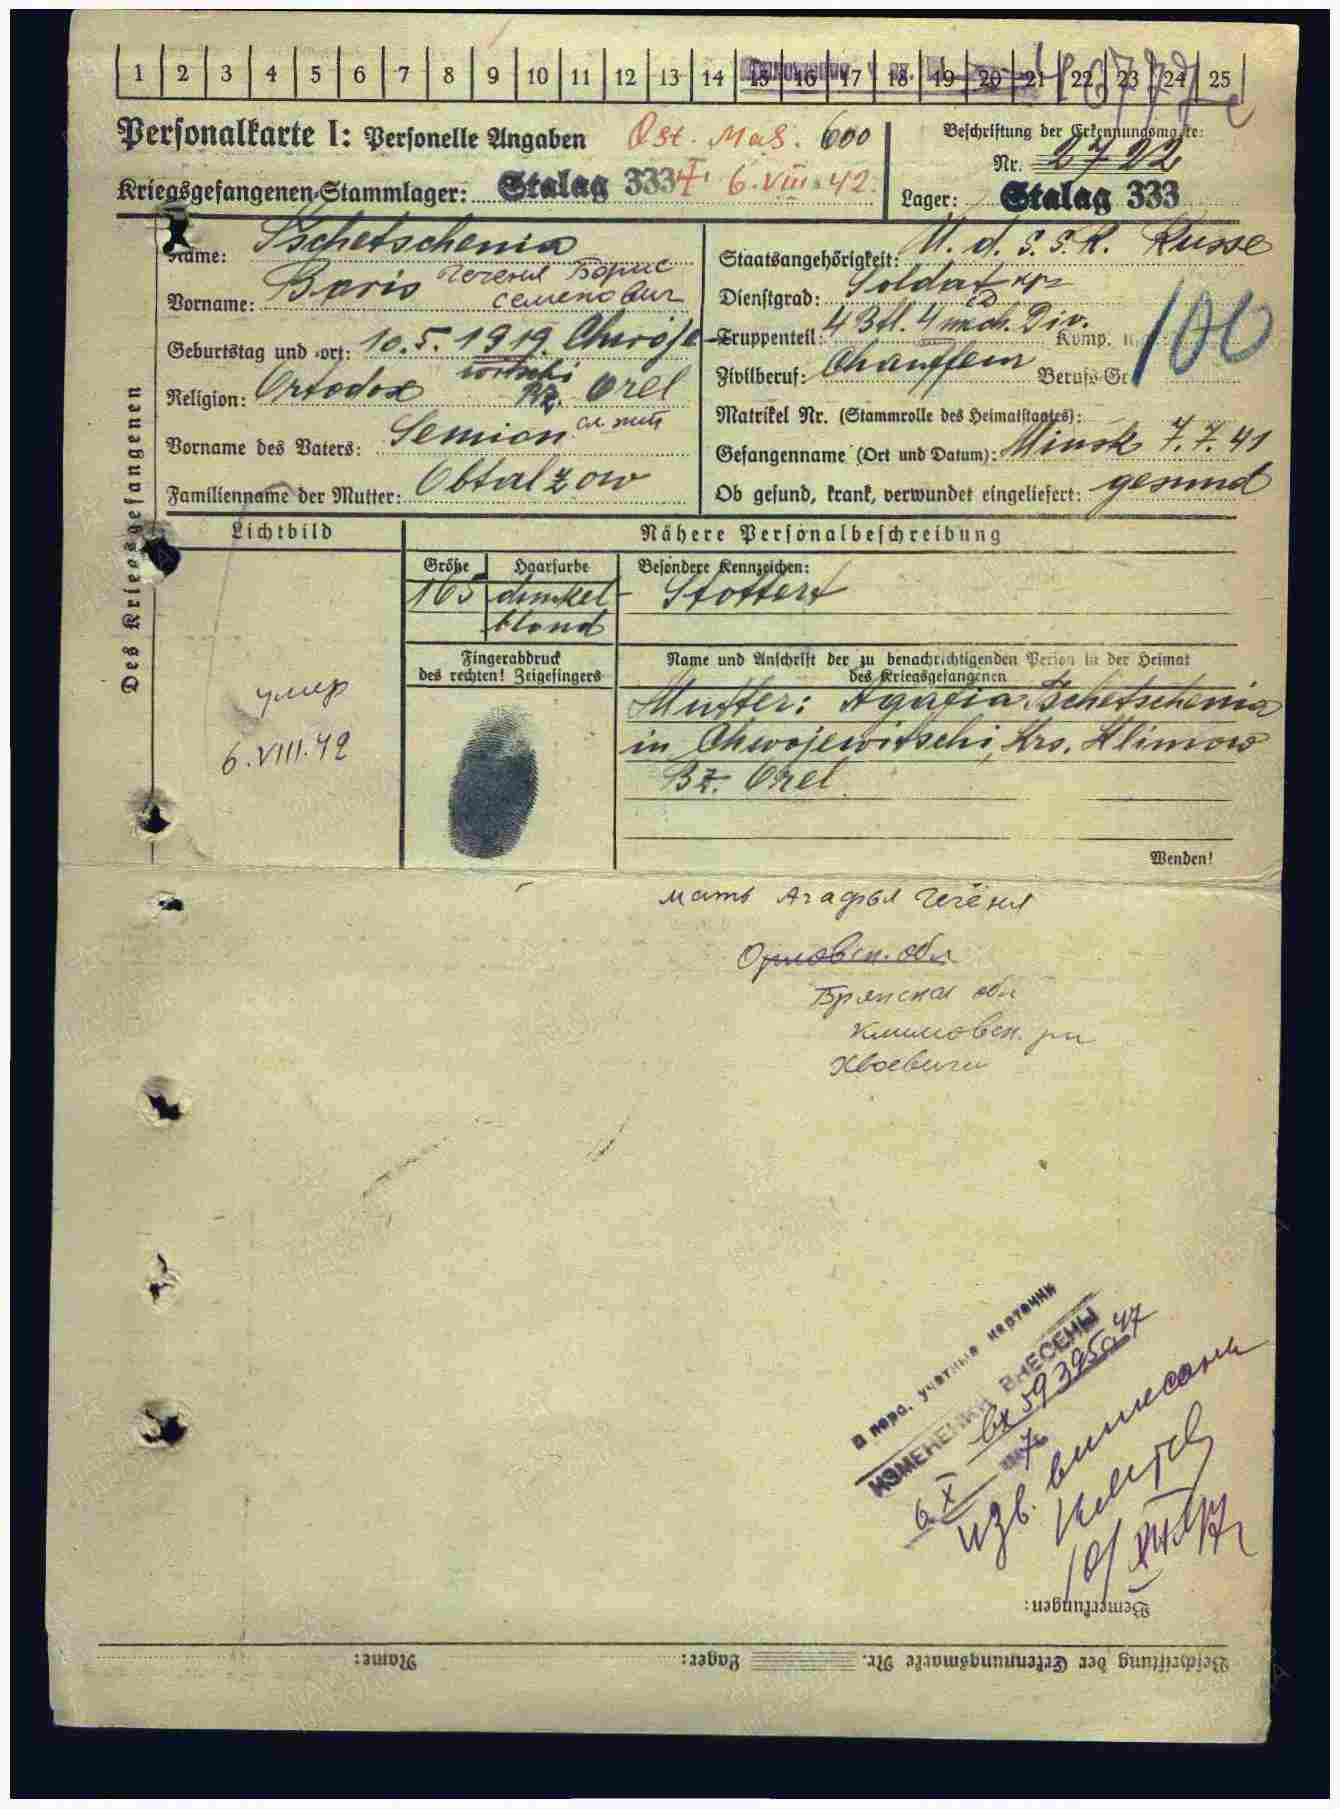 1 2 3 4 5 6 7 8 9 10 11 12 13 14 15 16 17 18 19 20 21 22 23 24 25
Personalkarte I: Personelle Angaben
Ost. Mas. 600
Beschriftung der Erkennungsmarke:
Nr. 2722
Kriegsgefangenen-Stammlager: Stalag 333
6.VIII.42.
Lager: Stalag 333
Des Kriegsgefangenen
Name: Tschetschenia
Vorname: Boris
Чеченя Борис
семенович
Geburtstag und -ort: 10.5.1919. Chwoje-
witschi
Religion: Ortodox Bz. Orel
Vorname des Vaters: Semion
Familienname der Mutter: Obtalzow
Staatsangehörigkeit: U. d. S. S. R. Russe
Dienstgrad: Soldat
Truppenteil: 4 Btl. 4 mech. Div. Komp.
100
Zivilberuf: Chauffeur Berufs-Gr
Matrikel Nr. (Stammrolle des Heimatstaates):
Gefangenname (Ort und Datum): Minsk 7.7.41
Ob gesund, krank, verwundet eingeliefert: gesund
Lichtbild
умер
6.VIII.42
Nähere Personalbeschreibung
Größe
165
Haarfarbe
dunkel-
blond
Besondere Kennzeichen:
Stottert
Fingerabdruck
des rechten! Zeigefingers
Name und Anschrift der zu benachrichtigenden Person in der Heimat
des Kriegsgefangenen
Mutter: Agafia Tschetschenia
in Chwojewitschi, Krs. Klimow
Bz. Orel
Wenden!
мать Агафья Чечёня
Орловск. обл
Брянская обл
Климовск. рн
Хвоевичи
В перс. учетные карточки
ИЗМЕНЕНИЯ ВНЕСЕНЫ
вх 59395с 47
6 X 47
изв. выписано
Bemerkungen:
Beschriftung der Erkennungsmarke Nr. Lager: Name: